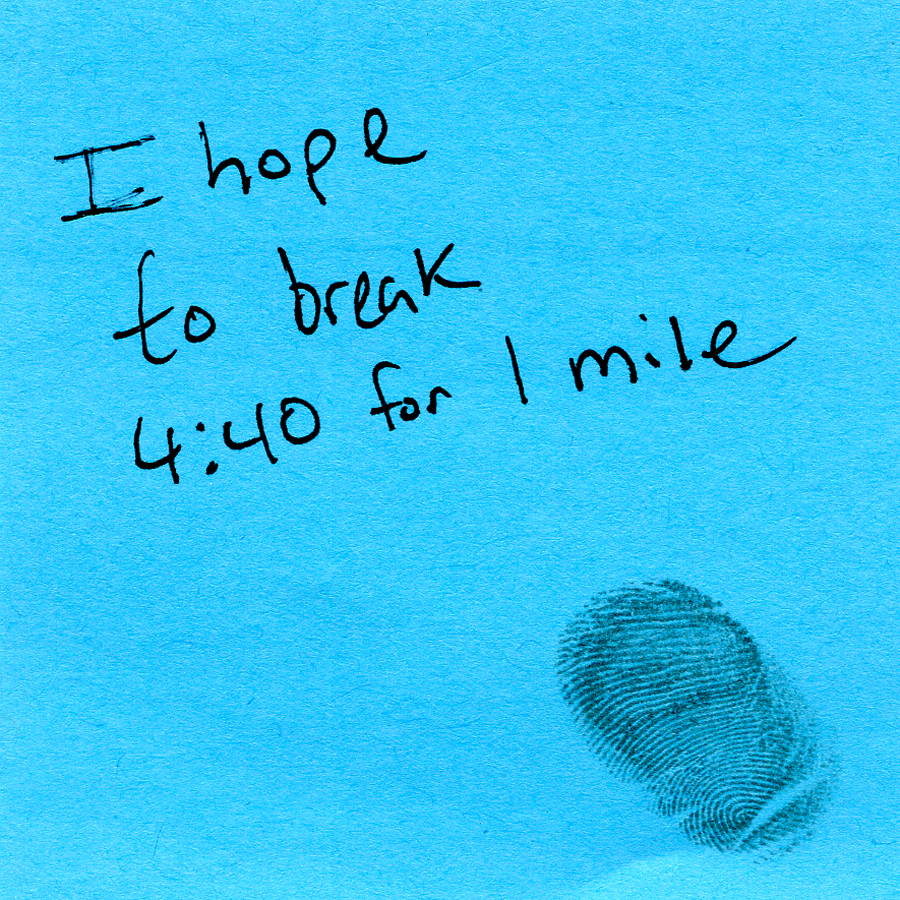 I hope
to break
4:40 for 1 mile